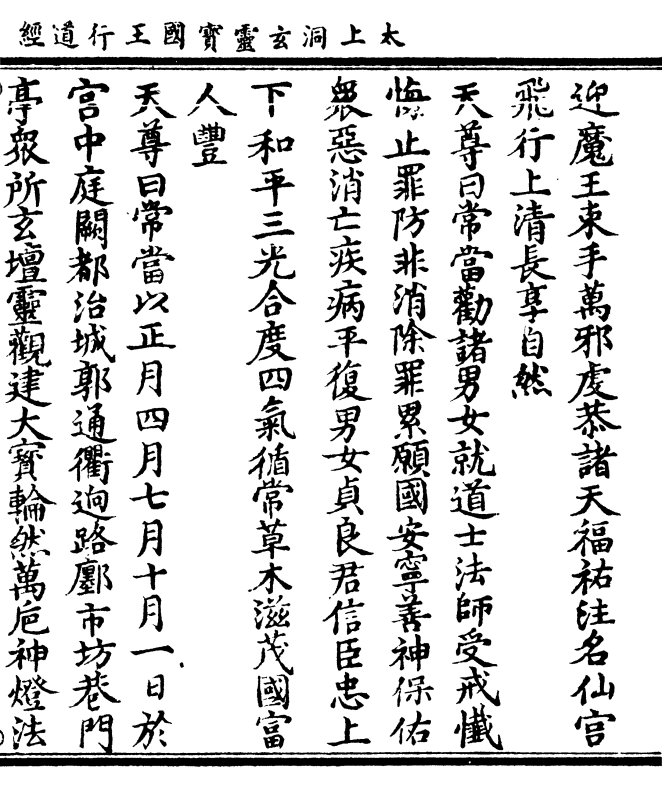 太上洞玄靈寶國王行道經
迎魔王束手萬邪虔恭諸天福祐注名仙宫
飛行上清長享自然
天尊曰常當勸諸男女就道士法師受戒懺
悔止罪防非消除罪累願國安寧善神保佑
衆惡消亡疾病平復男女貞良君信臣忠上
下和平三光合度四氣循常草木滋茂國富
人豐
天尊曰常當以正月四月七月十月一日於
宫中庭闕都治城郭通衢逈路鄽市坊巷門
亭衆所玄壇靈觀建大寶輪然萬卮神燈法